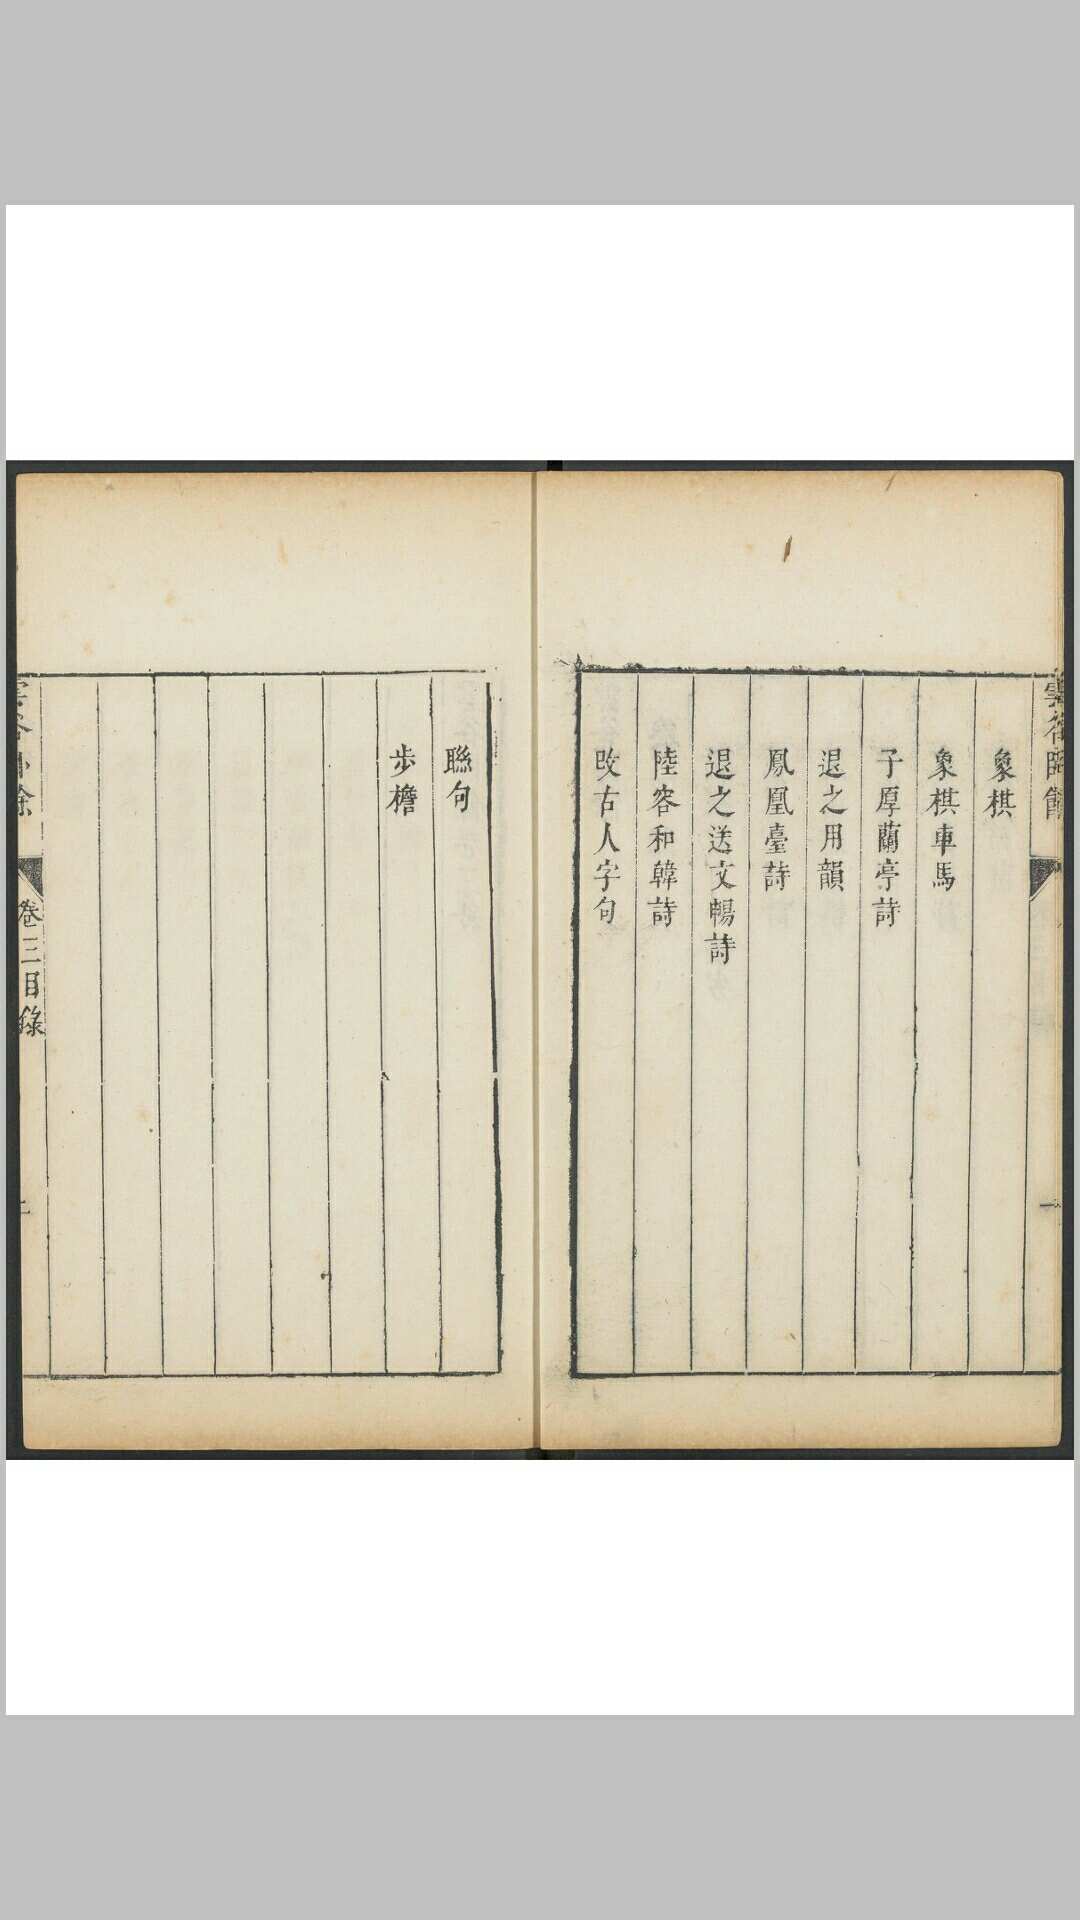 象棋
象棋車馬
子厚蘭亭詩
退之用韻
鳳凰臺詩
退之送文暢詩
陸容和韓詩
改古人字句
聯句
步檐
卷三目錄